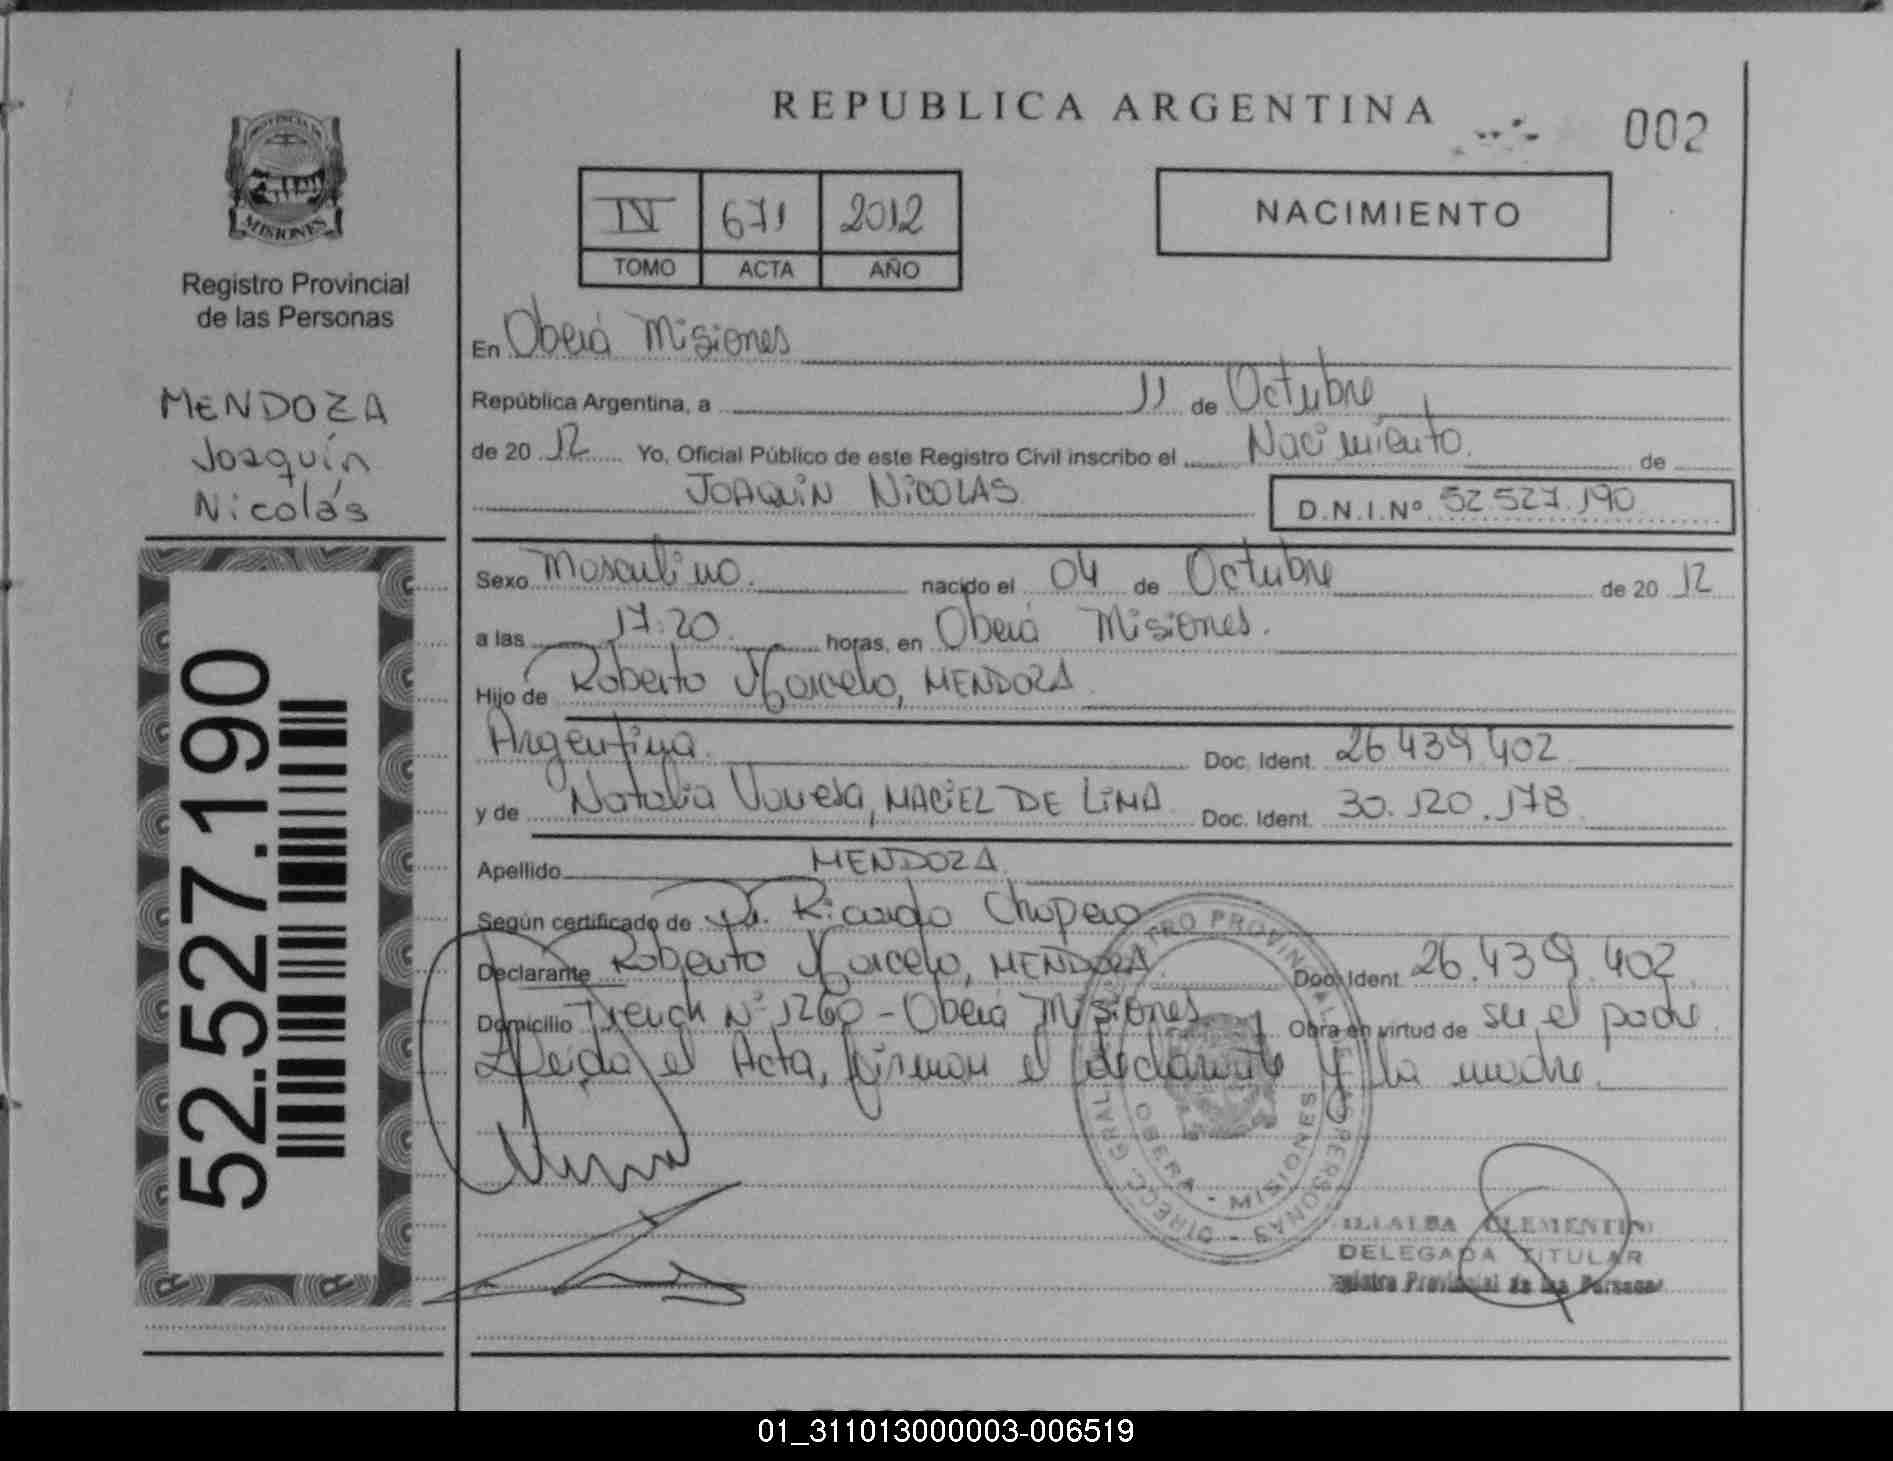 REPUBLICA ARGENTINA
002
PROVINCIA DE
MISIONES
Registro Provincial
de las Personas
MENDOZA
Joaquín
Nicolás
52.527.190
IV 671 2012
TOMO ACTA AÑO
NACIMIENTO
En Oberá Misiones
República Argentina, a 11 de Octubre
de 20 12 Yo, Oficial Público de este Registro Civil inscribo el Nacimiento de
JOAQUIN NICOLAS D.N.I.Nº 52.527.190
Sexo Masculino. nacido el 04 de Octubre de 20 12
a las 17:20. horas, en Oberá Misiones.
Hijo de Roberto Marcelo, MENDOZA
Argentina. Doc. Ident. 26.439.402
y de Natalia Vanesa, MACIEL DE LIMA Doc. Ident. 30.120.178
Apellido MENDOZA
Según certificado de Dr. Ricardo
Declarante Roberto Marcelo, MENDOZA. Doc. Ident. 26.439.402
Domicilio Nº 1260 - Oberá Misiones Obra en virtud de ser el padre.
Leída el Acta, firman el declarante y la madre.
DIRECC. GRAL. REGISTRO PROVINCIAL DE LAS PERSONAS
OBERA - MISIONES
CLEMENTINA
DELEGADA TITULAR
Registro Provincial de las Personas
01_311013000003-006519